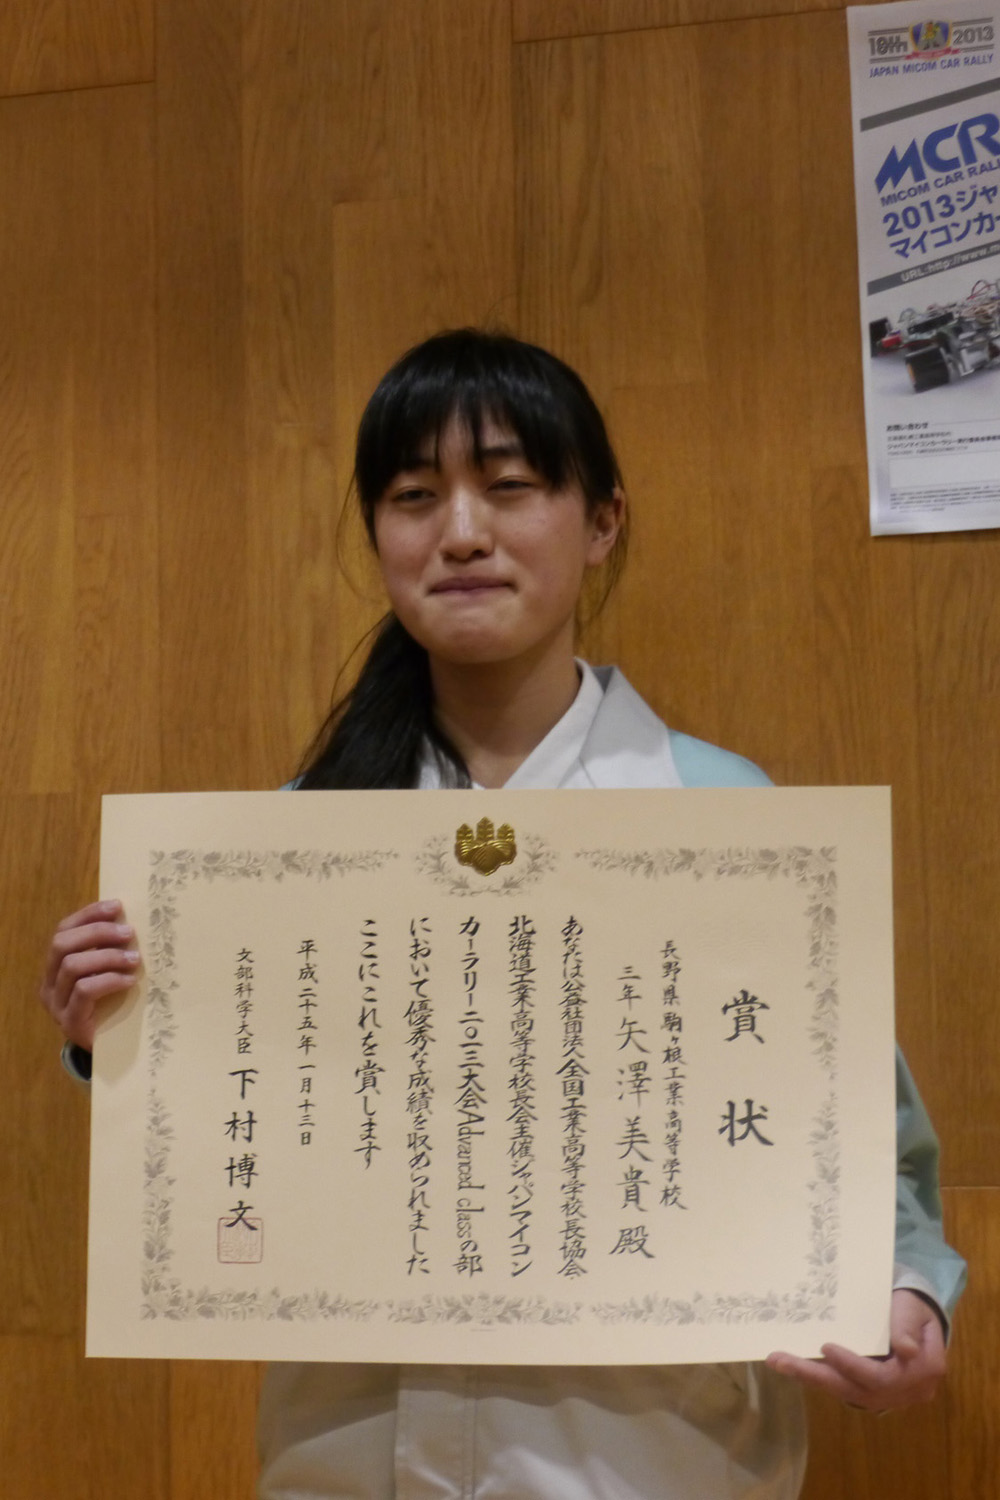 賞状
長野県駒ヶ根工業高等学校
三年 矢澤美貴殿
あなたは公益社団法人全国工業高等学校長協会、
北海道工業高等学校長会主催ジャパンマイコン
カーラリー二〇一三大会Advanced classの部
において優秀な成績を収められました
ここにこれを賞します
平成二十五年一月十三日
文部科学大臣 下村博文
19th 2013
JAPAN MICOM CAR RALLY
MCR
MICOM CAR RALL
2013ジャ
マイコンカー
URL:http://www.m
お問い合わせ